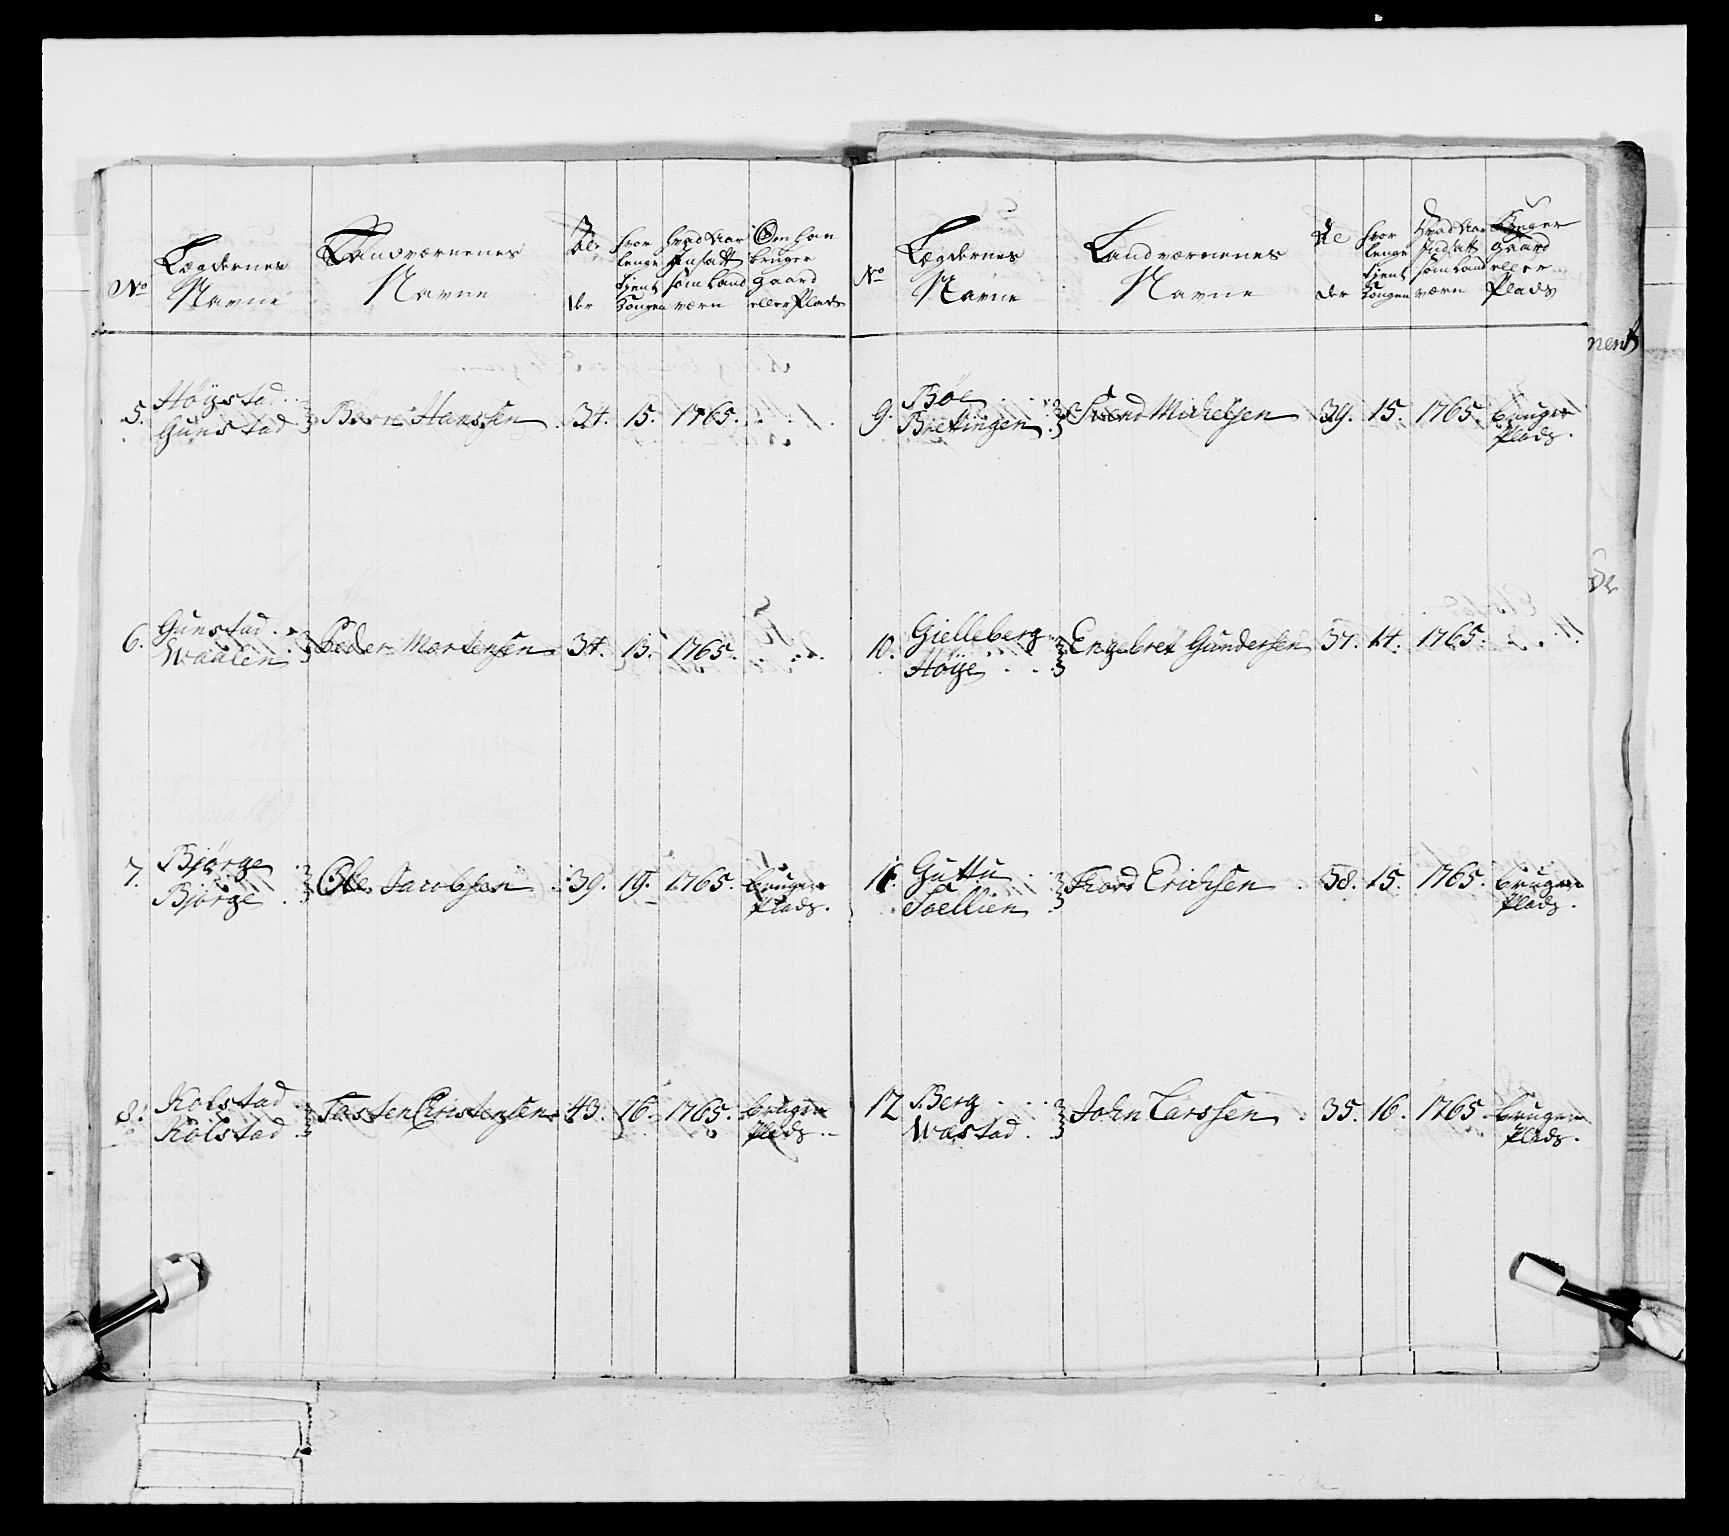 No
Lægdernes
Navne
Landværnenes
Navne
Al
der
hvor
lenge
tjent
Kongen
hvad Aar
Insatt
som Land
værn
Om han
bruger
gaard
eller Plads
5. Höystad
Gunstad
Hanssen 34. 15. 1765.
6. Gunstad
Waalen
Peder Mortensen 34. 15. 1765.
7. Bjørge
Bjørge
Ole Jacobsen 39. 19. 1765. bruger
Plads.
8. Kolstad
Kolstad
Tosten Christensen 43. 16. 1765. bruger
Plads.
No
Lægdernes
Navne
Landværnenes
Navne
der
hvor
lenge
tjent
Kongen
Hvad Aar
Indsatt
som Land
værn
Bruger
gaard
eller
Plads
9. Böe
Brettingen
Svend Michelsen 39. 15. 1765. bruger
Plads.
10. Gielleberg
Höye
Engebret Gundersen 37. 14. 1765.
11. Guttu
Soellien
Tord Erichsen 38. 15. 1765. bruger
Plads.
12 Berg
Wastad
John Larssen 35. 16. 1765. bruger
Plads.